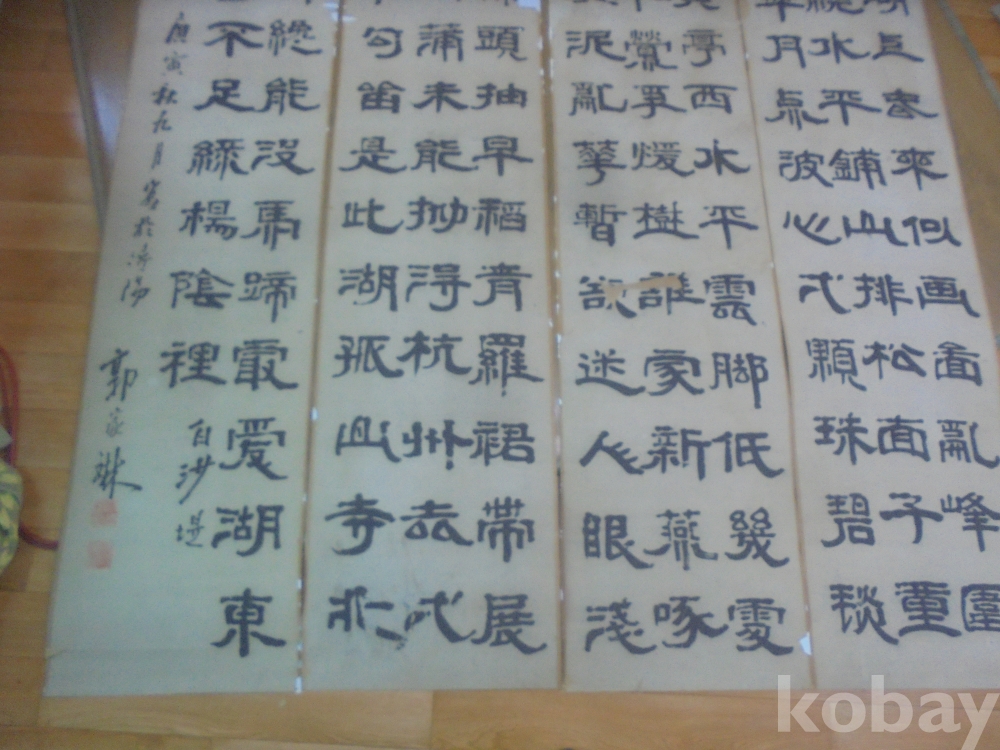 上春來似画啚亂峰圍
繞水平鋪山排松面千重
翠月点波心弌顆珠碧毯
亭西水平雲脚低幾處
鶯爭煖樹誰家新燕啄
泥亂華暫欲迷人眼淺
頭抽早稻青羅裙帶展
蒲未能拋得杭州去弌
勾留是此湖孤山寺北
纔能沒馬蹄最愛湖東
不足綠楊陰裡白沙堤
庚寅秋九月寫於濟陽
郭家琳
kobay